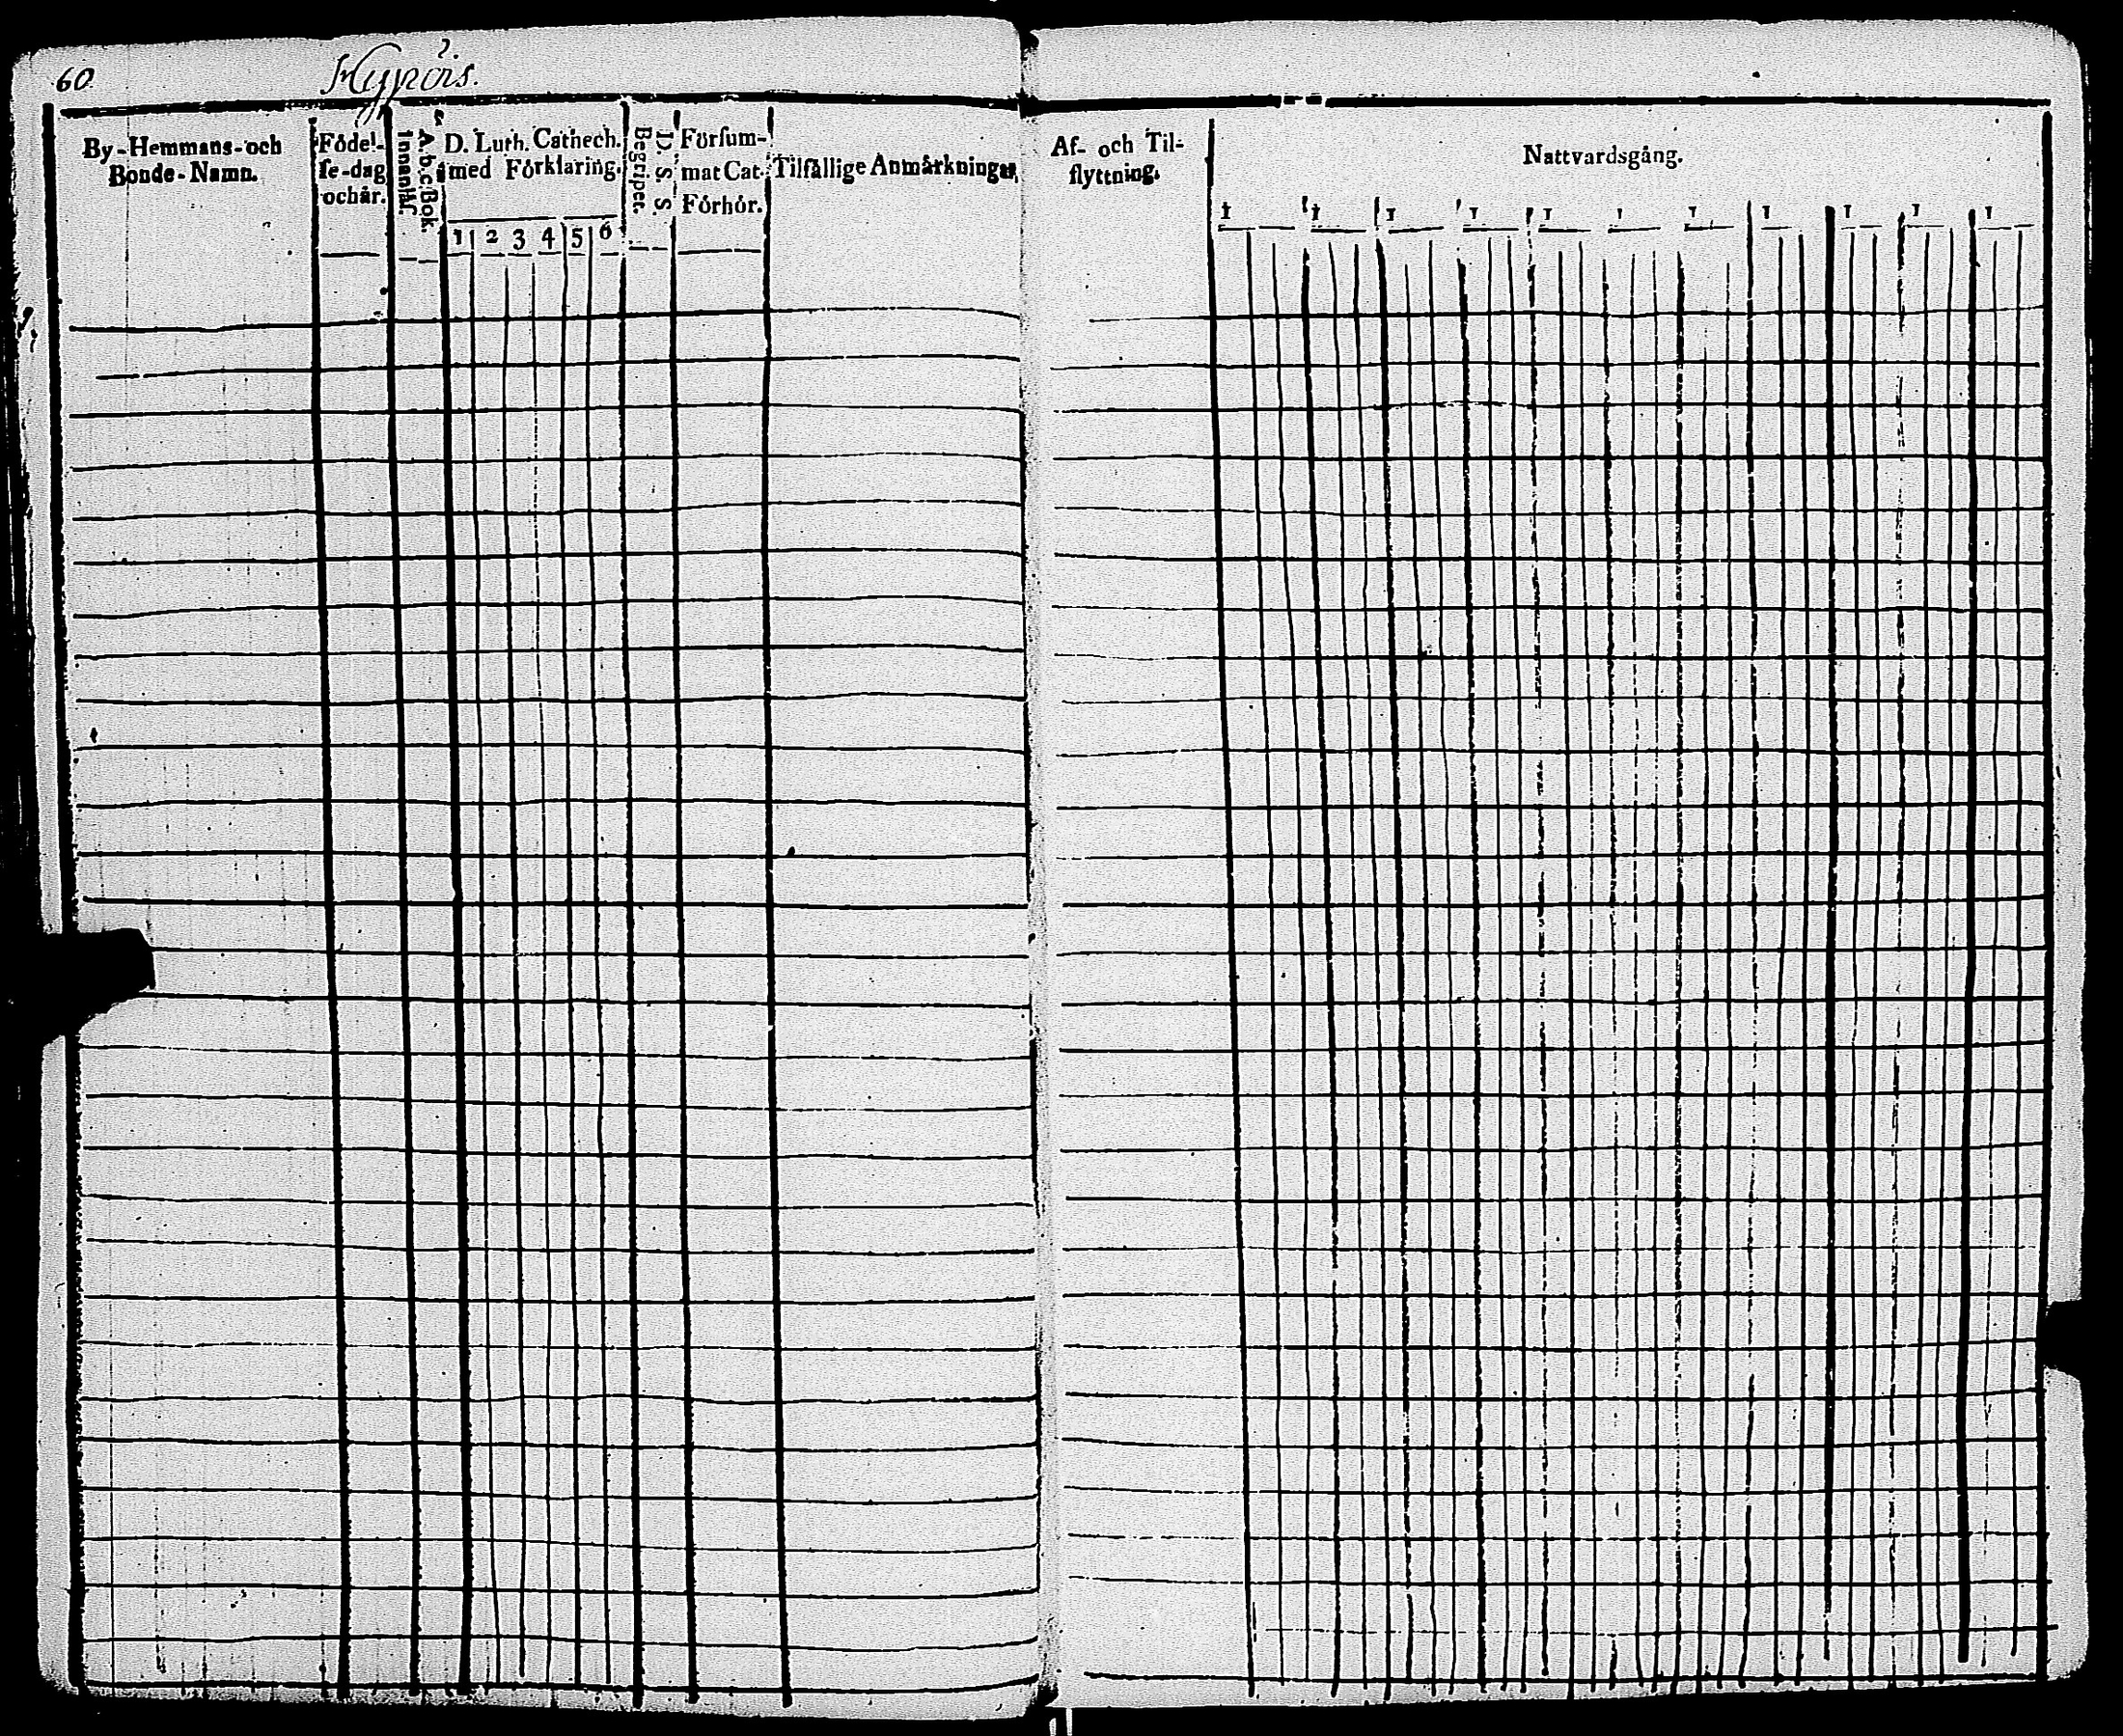 60.
Hyppöis.
By-Hemmans-och
Bonde-Namn.
Födel-
se-dag
och år.
A.b.c.Bok.
Innantil.
D. Luth. Cathech.
med Förklaring.
1 2 3 4 5 6
D. S. S.
Begripet.
Försum-
mat Cat.
Förhör.
Tilfällige Anmärkningar
Af- och Til-
flyttning.
Nattvardsgång.
1 1 1 1 1 1 1 1 1 1 1